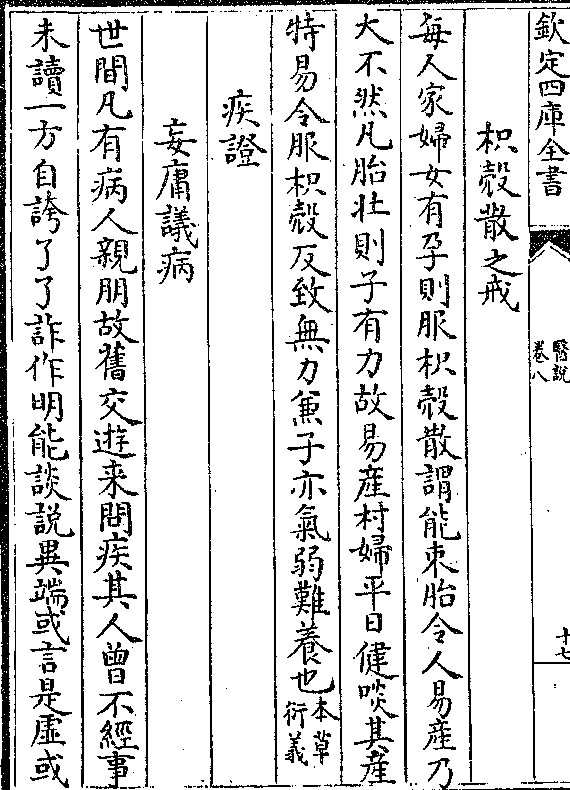 欽定四庫全書
醫說
卷八
十七
枳殼散之戒
每人家婦女有孕則服枳殼散謂能束胎令人易產乃
大不然凡胎壯則子有力故易產村婦平日健啖其產
特易令服枳殼反致無力兼子亦氣弱難養也本草衍義
疾證
妄庸議病
世間凡有病人親朋故舊交遊来問疾其人曾不經事
未讀一方自誇了了詐作明能談說異端或言是虛或